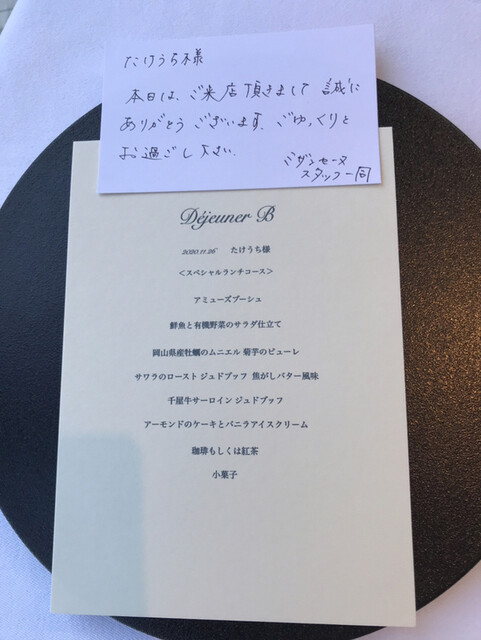 たけうち様
本日は、ご来店頂きまして 誠に
ありがとう ございます。ごゆっくりと
お過ごし下さい。
ミザンセーヌ
スタッフ一同
Déjeuner B
2020.11.26 たけうち様
<スペシャルランチコース>
アミューズブーシュ
鮮魚と有機野菜のサラダ仕立て
岡山県産牡蠣のムニエル 菊芋のピューレ
サワラのロースト ジュドブッフ 焦がしバター風味
千屋牛サーロイン ジュドブッフ
アーモンドのケーキとバニラアイスクリーム
珈琲もしくは紅茶
小菓子